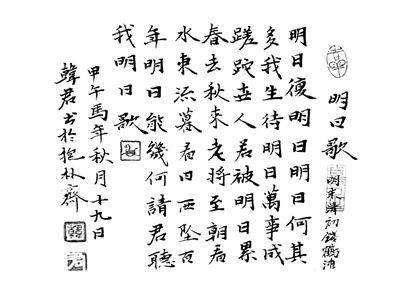 明日歌
明末清初錢鶴滩
明日復明日明日何其
多我生待明日萬事成
蹉跎世人若被明日累
春去秋來老將至朝看
水東流暮看日西墜百
年明日能幾何請君聽
我明日歌
甲午馬年秋月十九日
韓君书於抱林齋